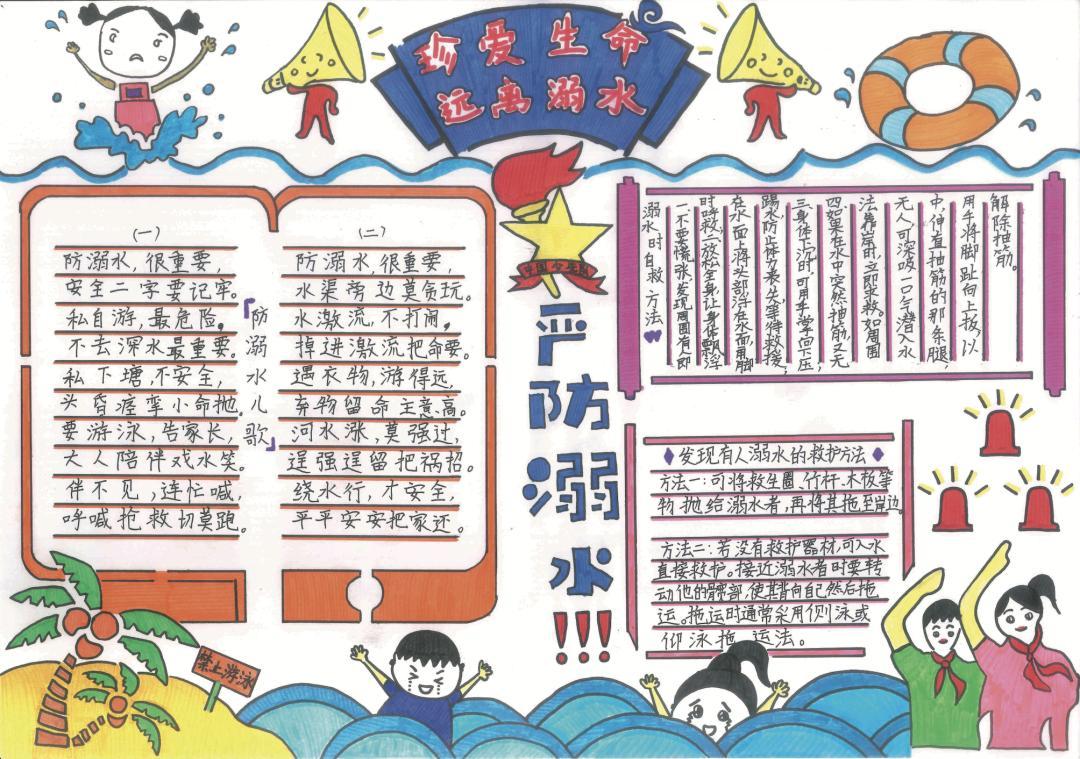 珍爱生命
远离溺水
中国少年队
严防溺水!!!
『防溺水儿歌』
(一)
防溺水,很重要,
安全二字要记牢。
私自游,最危险,
不去深水最重要。
私下塘,不安全,
头昏痉挛小命抛。
要游泳,告家长,
大人陪伴戏水笑。
伴不见,连忙喊,
呼喊抢救切莫跑。
(二)
防溺水,很重要,
水渠旁边莫贪玩。
水激流,不打闹,
掉进激流把命要。
遇衣物,游得远,
弃物留命主意高。
河水涨,莫强过,
逞强逞留把祸招。
绕水行,才安全,
平平安安把家还。
溺水时自救方法
一不要慌张发现周围有人即
时呼救,二放松全身,让身体飘浮
在水面上将头部浮在水面,用脚
踢水,防止体力丧失,等待救援,
三身体下沉时,可用手掌向下压,
四如果在水中突然抽筋,又无
法靠岸时,立即求救。如周围
无人,可深吸一口气潜入水
中,伸直抽筋的那条腿,
用手将脚趾向上扳,以
解除抽筋。
发现有人溺水的救护方法
方法一:可将救生圈、竹杆、木板等
物抛给溺水者,再将其拖至岸边。
方法二:若没有救护器材,可入水
直接救护。接近溺水者时要转
动他的髋部,使其背向自己然后拖
运。拖运时通常采用侧泳或
仰泳拖运法。
禁止游泳